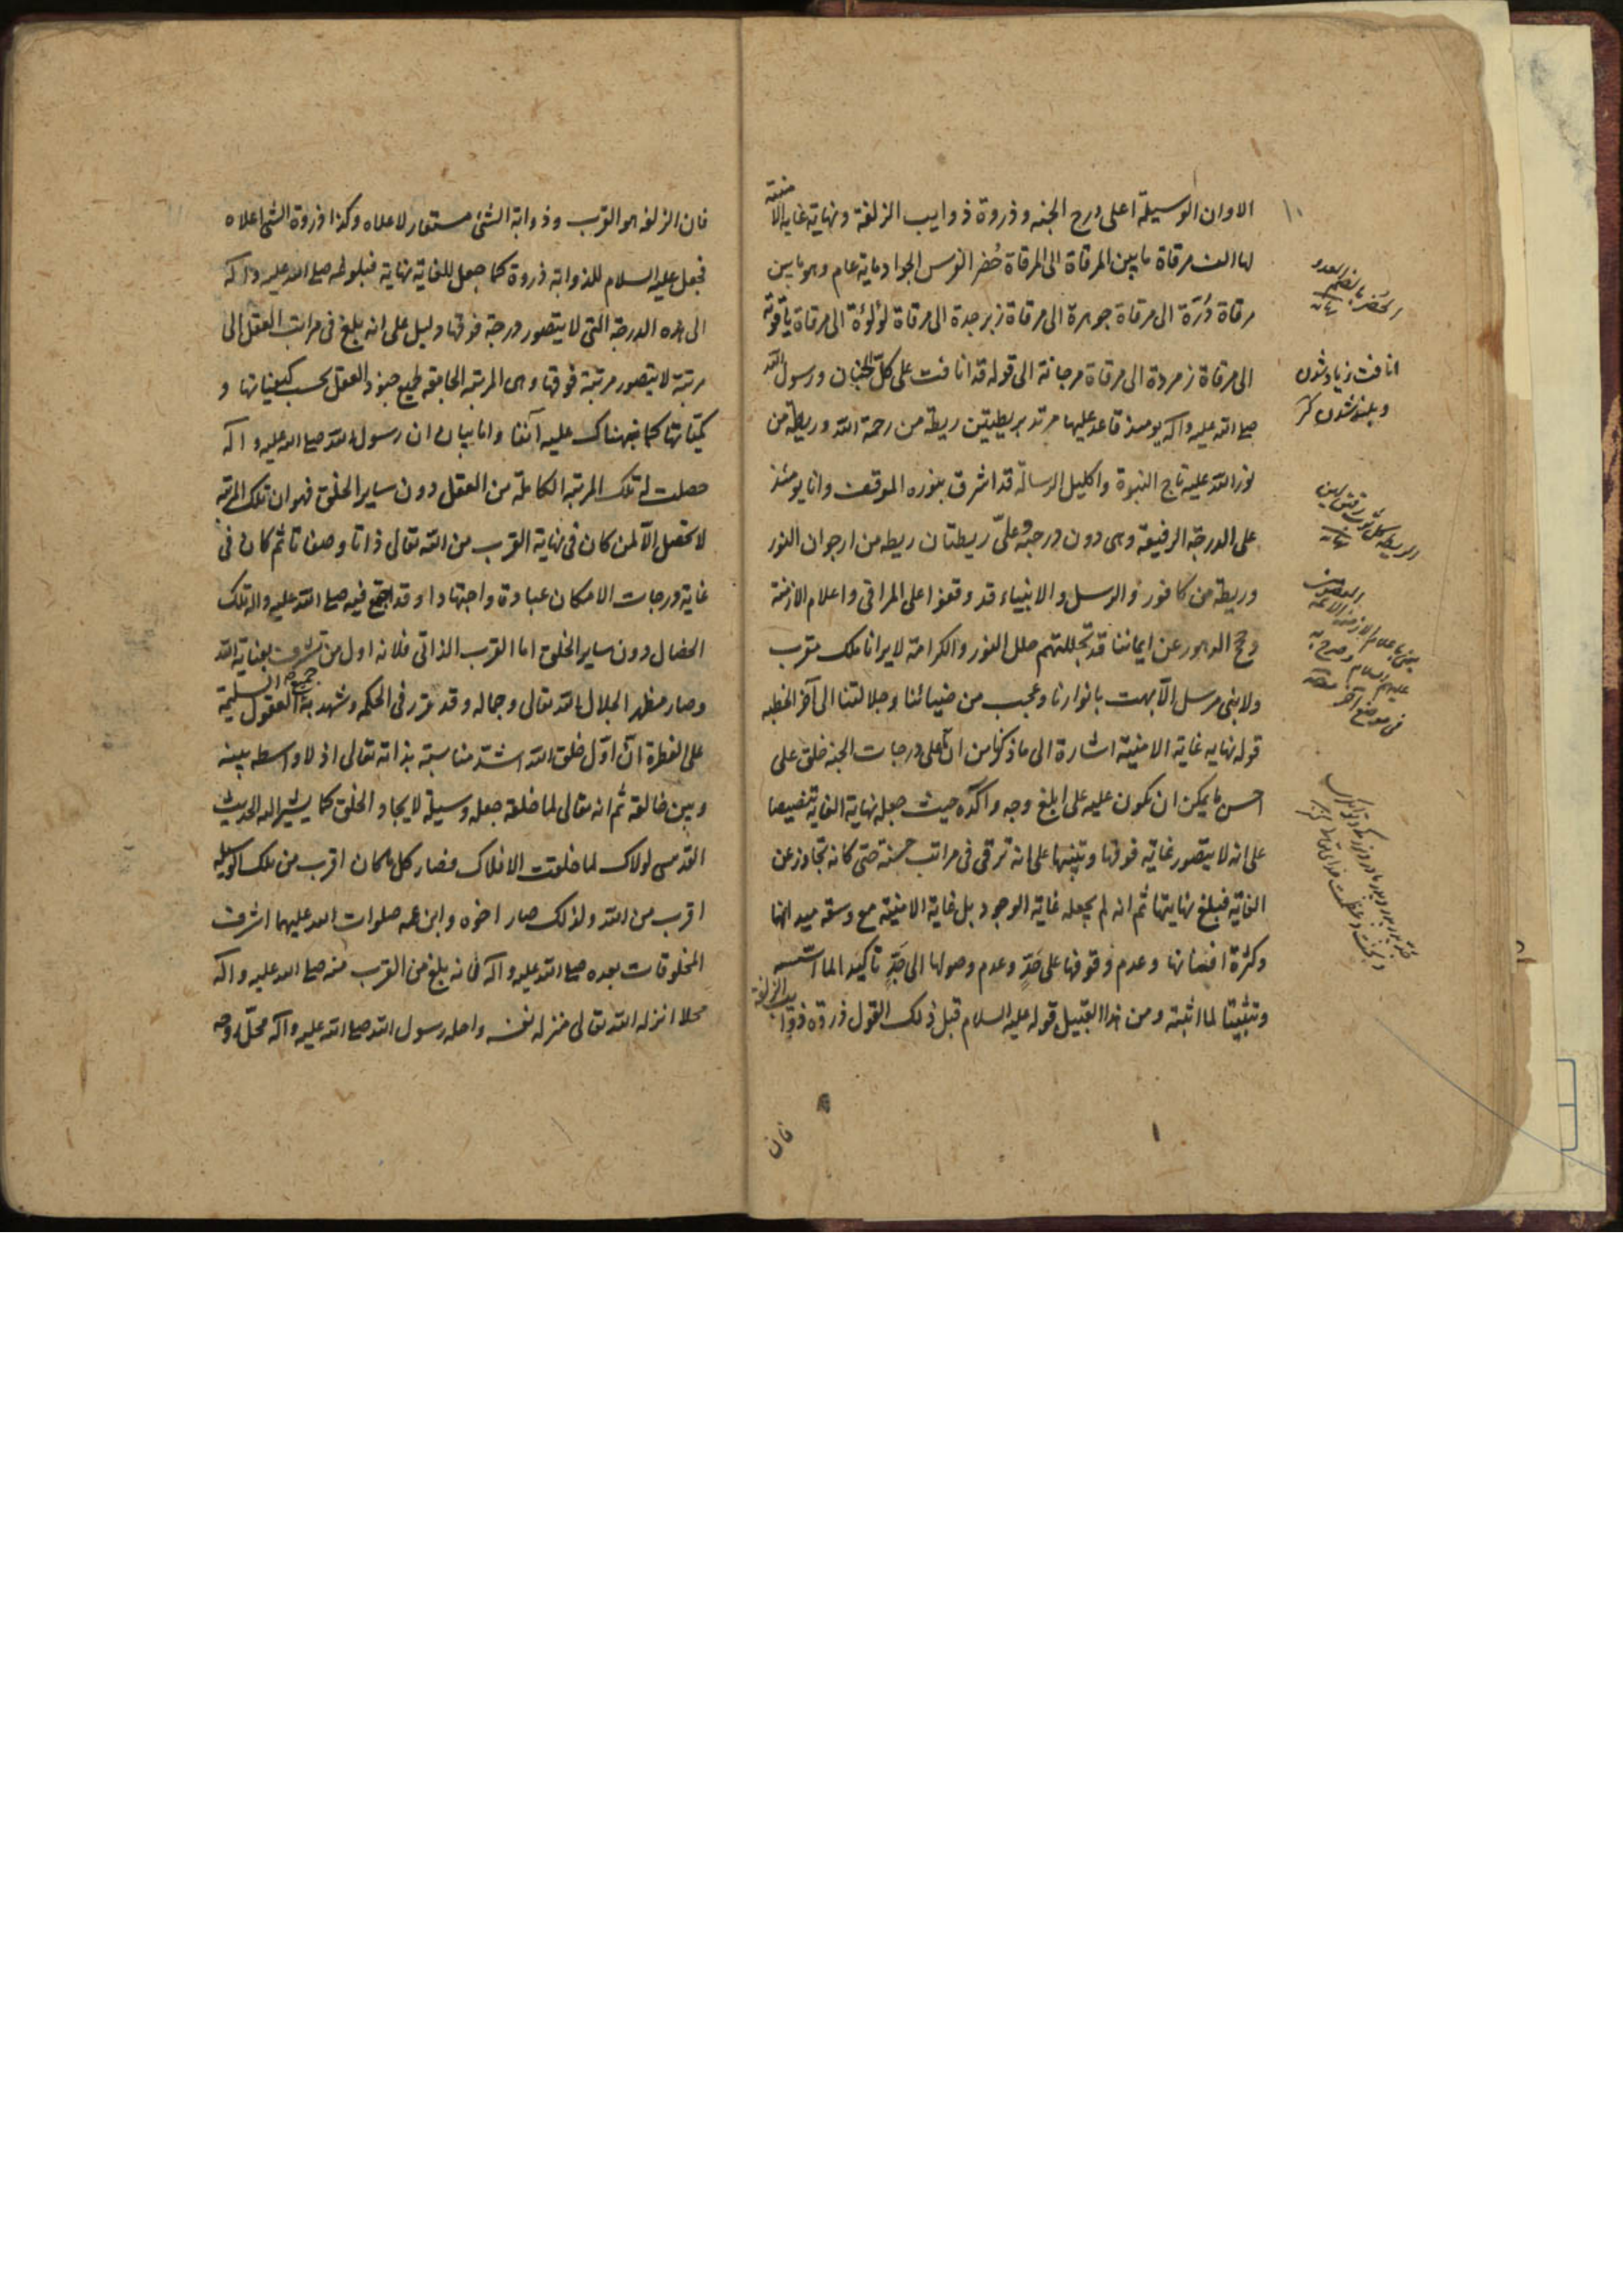 الا وان الوسيلة اعلى درج الجنه وذروة ذوايب الزلفة ونهاية غاية الامنية
لها الف مرقاة ما بين المرقاة الى المرقاة حُضر الفرس الجواد ماية عام وهو ما بين
مرقاة دُرّة الى مرقاة جوهرة الى مرقاة زبرجدة الى مرقاة لؤلؤة الى مرقاة ياقوتة
الى مرقاة زمردة الى مرقاة مرجانة الى قوله قد انافت على كل الجنان ورسول الله
صلى الله عليه واله يومئذ قاعد عليها مرتد بريطتين ريطة من رحمة الله وريطة من
نور الله عليه تاج النبوة واكليل الرسالة قد اشرق بنوره الموقف وانا يومئذ
على الدرجة الرفيعة وهى دون درجته وعلىّ ريطتان ريطه من ارجوان النور
وريطة من كافور والرسل والانبياء قد وقفوا على المراقى واعلام الازمنة
وحجج الدهور عن ايماننا قد تجللتهم حلل النور والكرامة لا يرانا ملك مقرب
ولا نبى مرسل الا بهت بانوارنا وعجب من ضيائنا وجلالتنا الى آخر الخطبه
قوله نهايه غاية الامنية اشارة الى ما ذكرنا من ان اعلى درجات الجنه خلق على
احسن ما يمكن ان يكون عليه على ابلغ وجه واكده حيث جعله نهاية الغاية تنصيصا
على انه لا يتصور غاية فوقها وتنبيها على انه ترقى فى مراتب حسنه حتى كانه تجاوز عن
الغاية فبلغ نهايتها ثم انه لم يجعله غاية الوجود بل غاية الامنية مع وسعة ميدانها
وكثرة افنانها وعدم وقوفها على حَدٍّ وعدم وصولها الى حَدٍّ تاكيدا لما اسسه
وتثبيتا لما اثبته ومن هذا القبيل قوله عليه السلام قبل ذلك القول ذروة ذوايب الزلفة
فان
الحُضر بالضم العدو
نهاية
انافت زياد شدن
وبلند شدن كنز
الريطة كل ثوب رقيق لين
نهاية
يعنى باعلام الازمنة الائمة
عليهم السلام وصرح به
فى موضع آخر
فان الزلفه هو القرب وذوابة الشئ مستعار لاعلاه وكذا ذروة الشئ اعلاه
فجعل عليه السلام للذوابة ذروة كما جعل للغاية نهاية فبلوغه صلى الله عليه واله
الى هذه الدرجة التى لا يتصور درجة فوقها دليل على انه بلغ فى مراتب العقل الى
مرتبة لا يتصور مرتبة فوقها وهى المرتبة الجامعة لجميع جنود العقل بحسب كيفياتها و
كمياتها كما نبهناك عليه آنفا واما بيان ان رسول الله صلى الله عليه واله
حصلت له تلك المرتبه الكاملة من العقل دون ساير الخلق فهو ان تلك المرتبة
لا تحصل الا لمن كان فى نهاية القرب من الله تعالى ذاتا وصفاتا ثم كان فى
غاية درجات الامكان عبادة واجتهادا وقد اجتمع فيه صلى الله عليه واله تلك
الخصال دون ساير الخلق اما القرب الذاتى فلانه اول من تشرف بعناية الله
وصار مظهر الجلال الله تعالى وجماله وقد تقرر فى الحكمه وشهد به جميع العقول السليمة
على الفطرة ان اوّل خلق الله اشد مناسبة بذاته تعالى اذ لا واسطه بينه
وبين خالقه ثم انه تعالى لما خلقه جعله وسيلة لايجاد الخلق كما يشير اليه الحديث
القدسى لولاك لما خلقت الافلاك فصار كل ما كان اقرب من تلك الوسيلة
اقرب من الله ولذلك صار اخوه وابن عمه صلوات الله عليهما اشرف
المخلوقات بعده صلى الله عليه واله فانه بلغ من القرب منه صلى الله عليه واله
محلا انزله الله تعالى منزله نفسه واحله رسول الله صلى الله عليه واله محل روحه